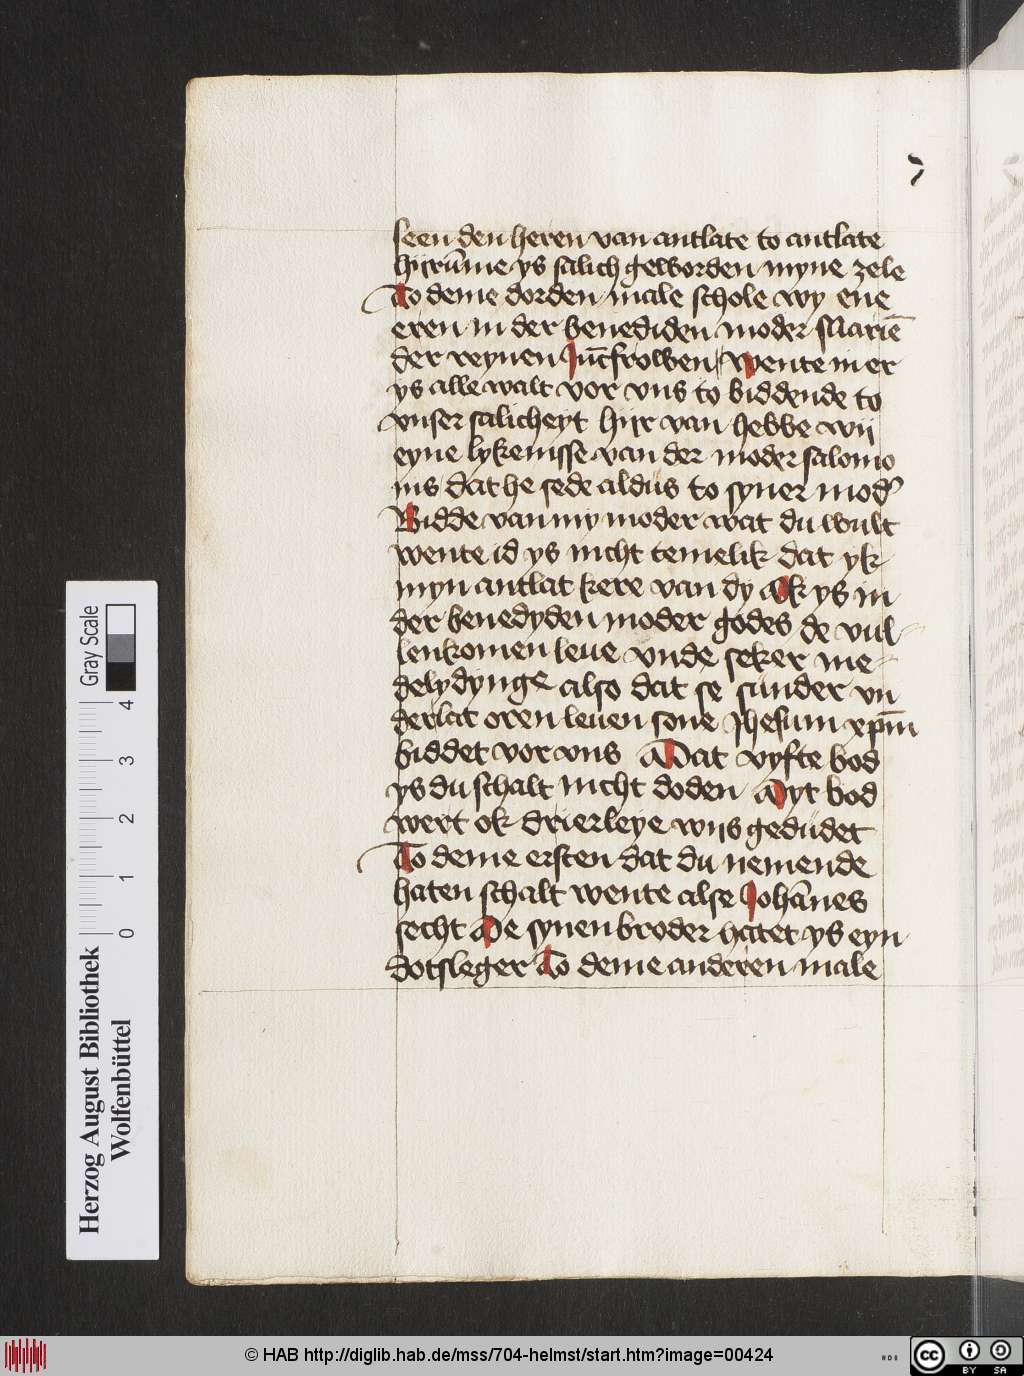 seen den heren van antlate to antlate
hijrūme ys salich geworden myne zele
To deme dorden male schole wy ene
eren in der benediden moder Mariē
der reynen Jūcfrowen wente in er
ys alle walt vor vns to biddende to
vnser salicheyt hijr van hebbe wij
eyne lykenisse van der moder salomo
nis dat he sede aldüs to syner mod᾽
Bidde van my moder wat du wult
wente id ys nicht temelik dat yk
myn antlat kere van dy Ok ys in
der benedyden moder godes de vul-
lenkomen leue vnde seker me-
delydynge also dat se sunder vn
derlat oren leuen sone Jhesum xp̄m
biddet vor vns Dat vyfte bod
ys du schalt nicht doden Dyt bod
wert ok drierleye wijs gedüdet
To deme ersten dat du nemende
haten schalt wente alse Johānes
secht De synen broder hatet ys eyn
dotsleger To deme anderen male
Herzog August Bibliothek
Wolfenbüttel
0 1 2 3 4
Gray Scale
© HAB http://diglib.hab.de/mss/704-helmst/start.htm?image=00424
cc BY SA